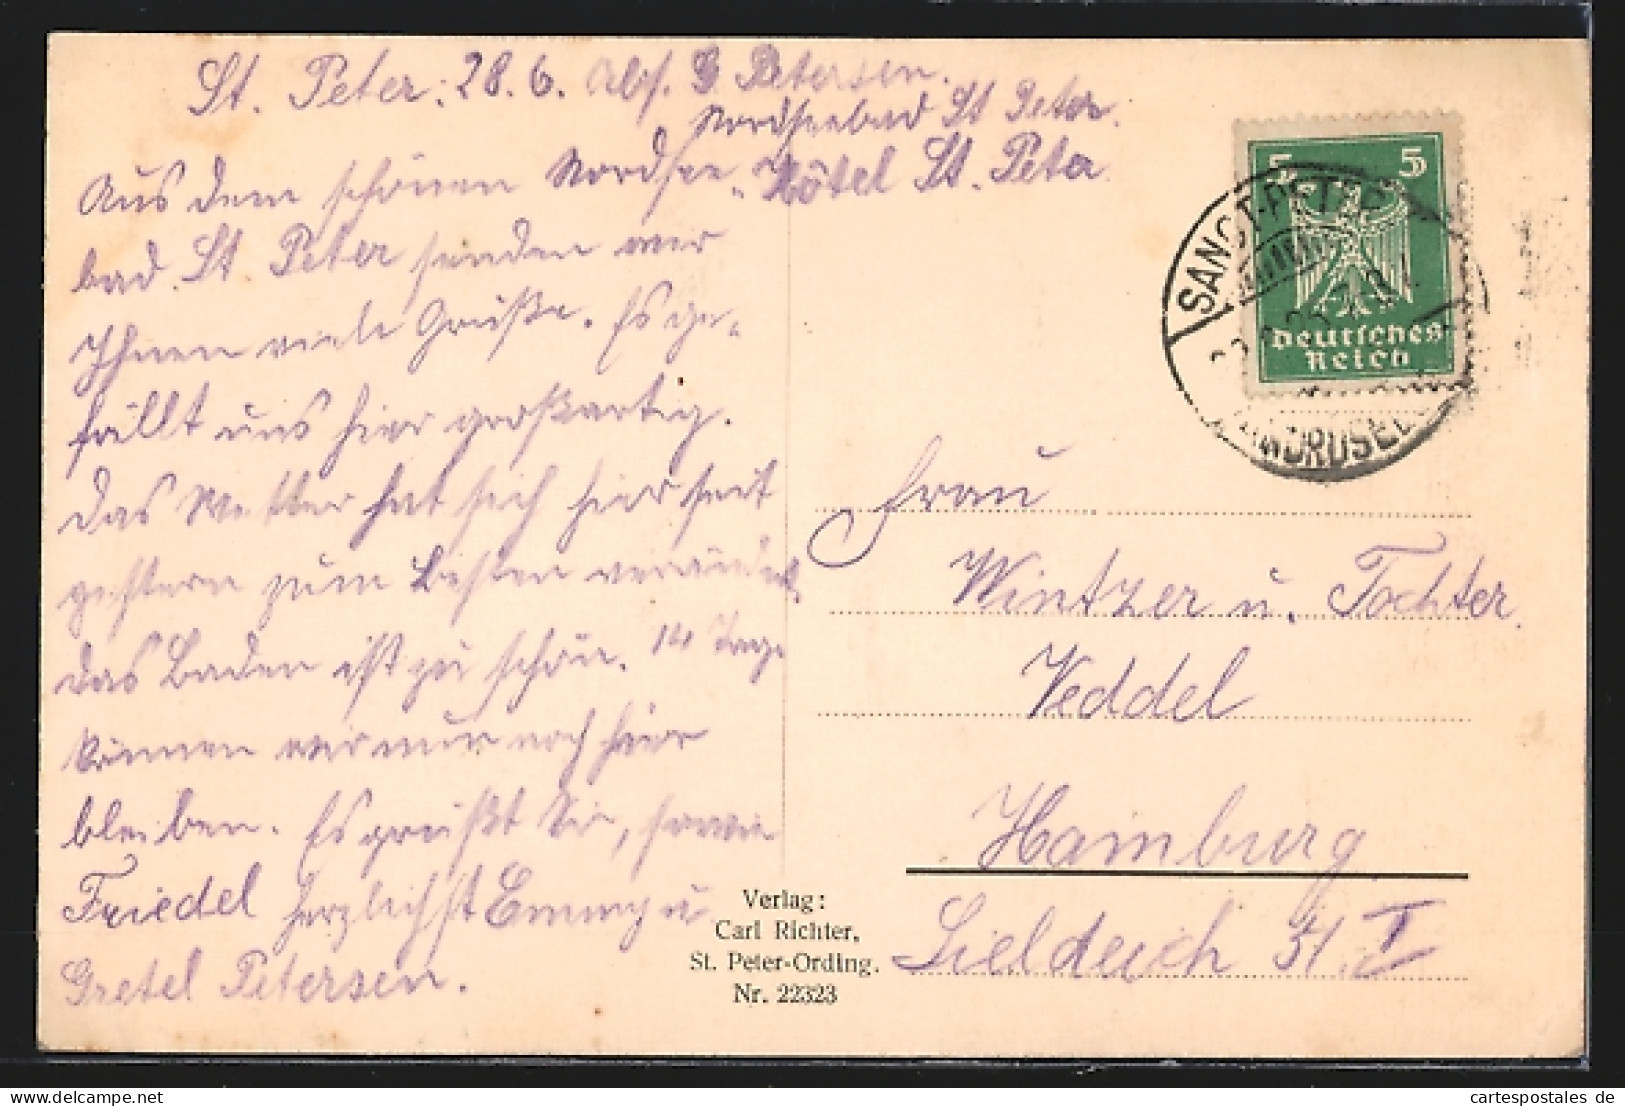 St. Peter: 28.6. Abs. G Petersen.
Nordseebad St Peter.
Hôtel St. Peter
Aus dem schönen Nordsee-
bad St. Peter senden wir
Ihnen viele Grüße. Es ge-
fällt uns hier großartig.
Das Wetter hat sich hier seit
gestern zum Besten verändert.
Das Baden ist zu schön. 14 Tage
können wir nur noch hier
bleiben. Es grüßt Sie, sowie
Friedel herzlichst Emmy u.
Gretel Petersen.
5 5
Deutsches
Reich
SANCT-PETER
Frau
Wintzer u. Tochter.
Veddel
Hamburg
Sieldeich 31. I
Verlag:
Carl Richter,
St. Peter-Ording.
Nr. 22323
cartespostales de